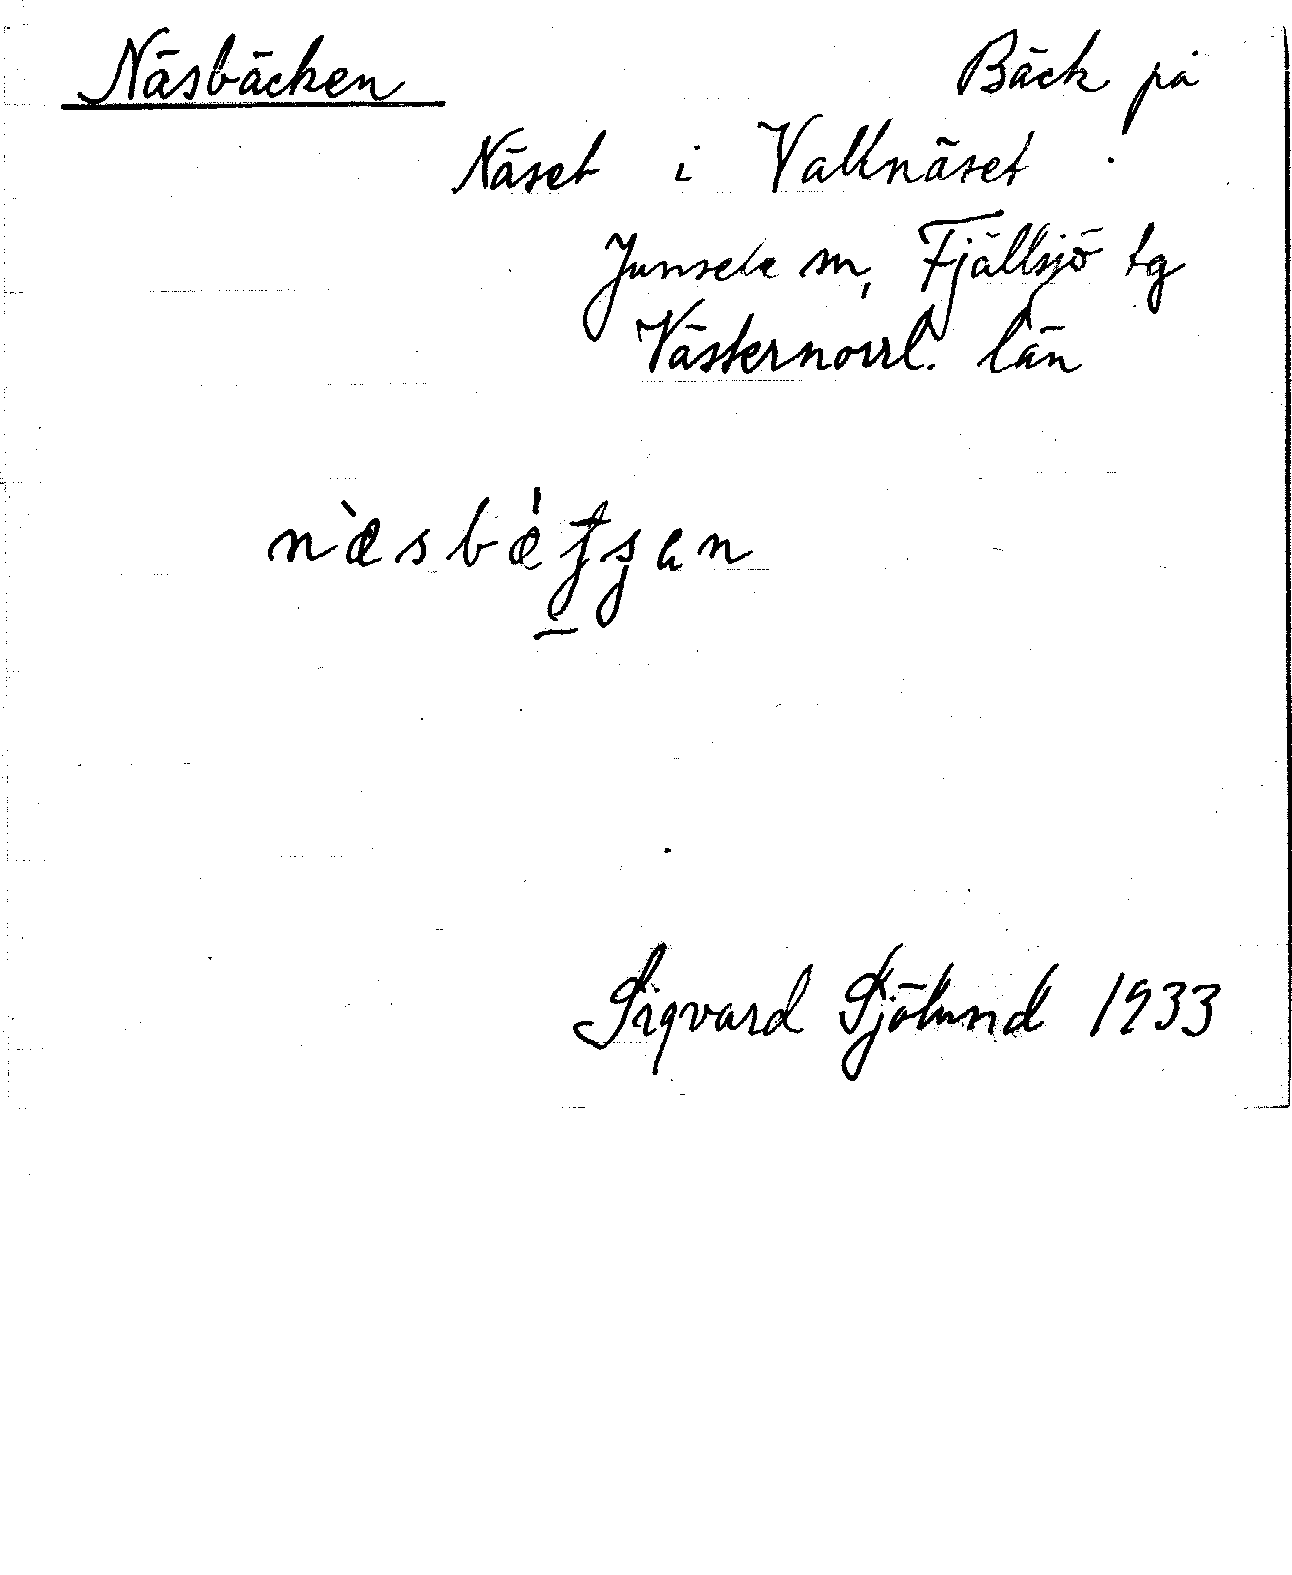 Näsbäcken Bäck på
Näset i Vallnäset
Junsele sn, Fjällsjö tg
Västernorrl. län
Sigvard Sjölund 1933